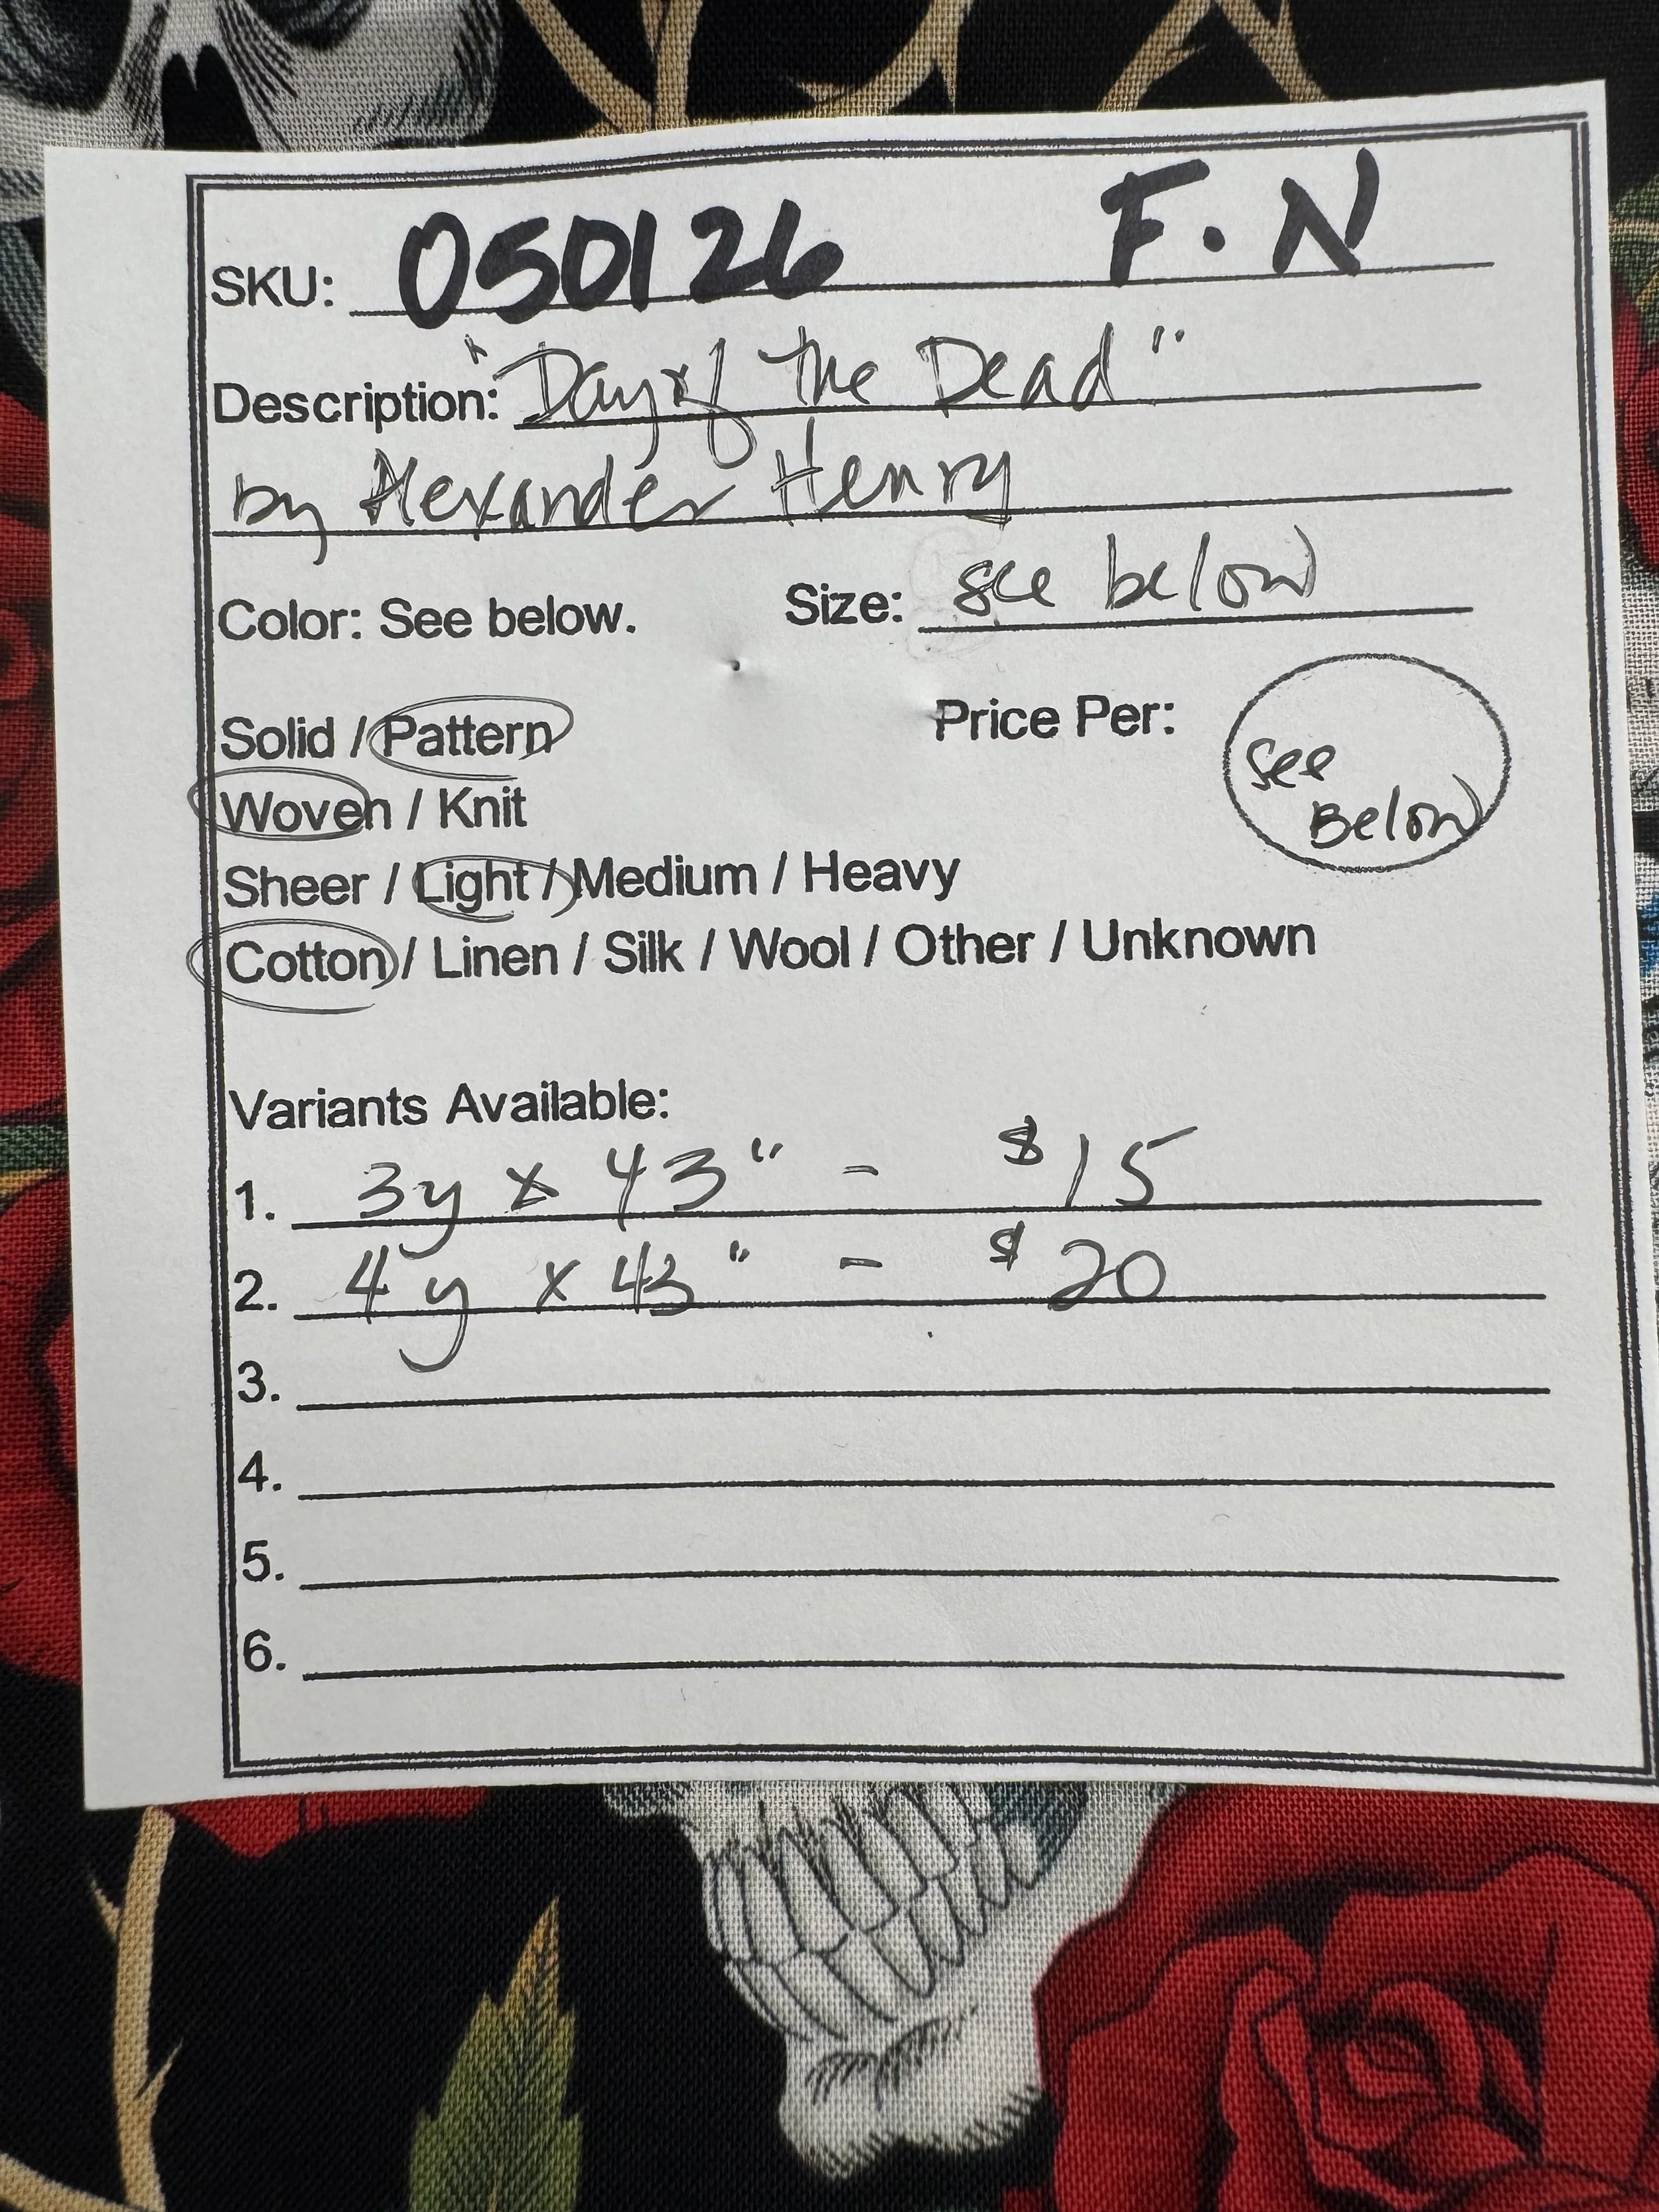 SKU: 050126 F.N
Description: "Day of the Dead"
by Alexander Henry
Color: See below. Size: see below
Solid / Pattern Price Per: See Below
Woven / Knit
Sheer / Light / Medium / Heavy
Cotton / Linen / Silk / Wool / Other / Unknown
Variants Available:
1. 3y x 43" - $15
2. 4y x 43" - $20
3.
4.
5.
6.